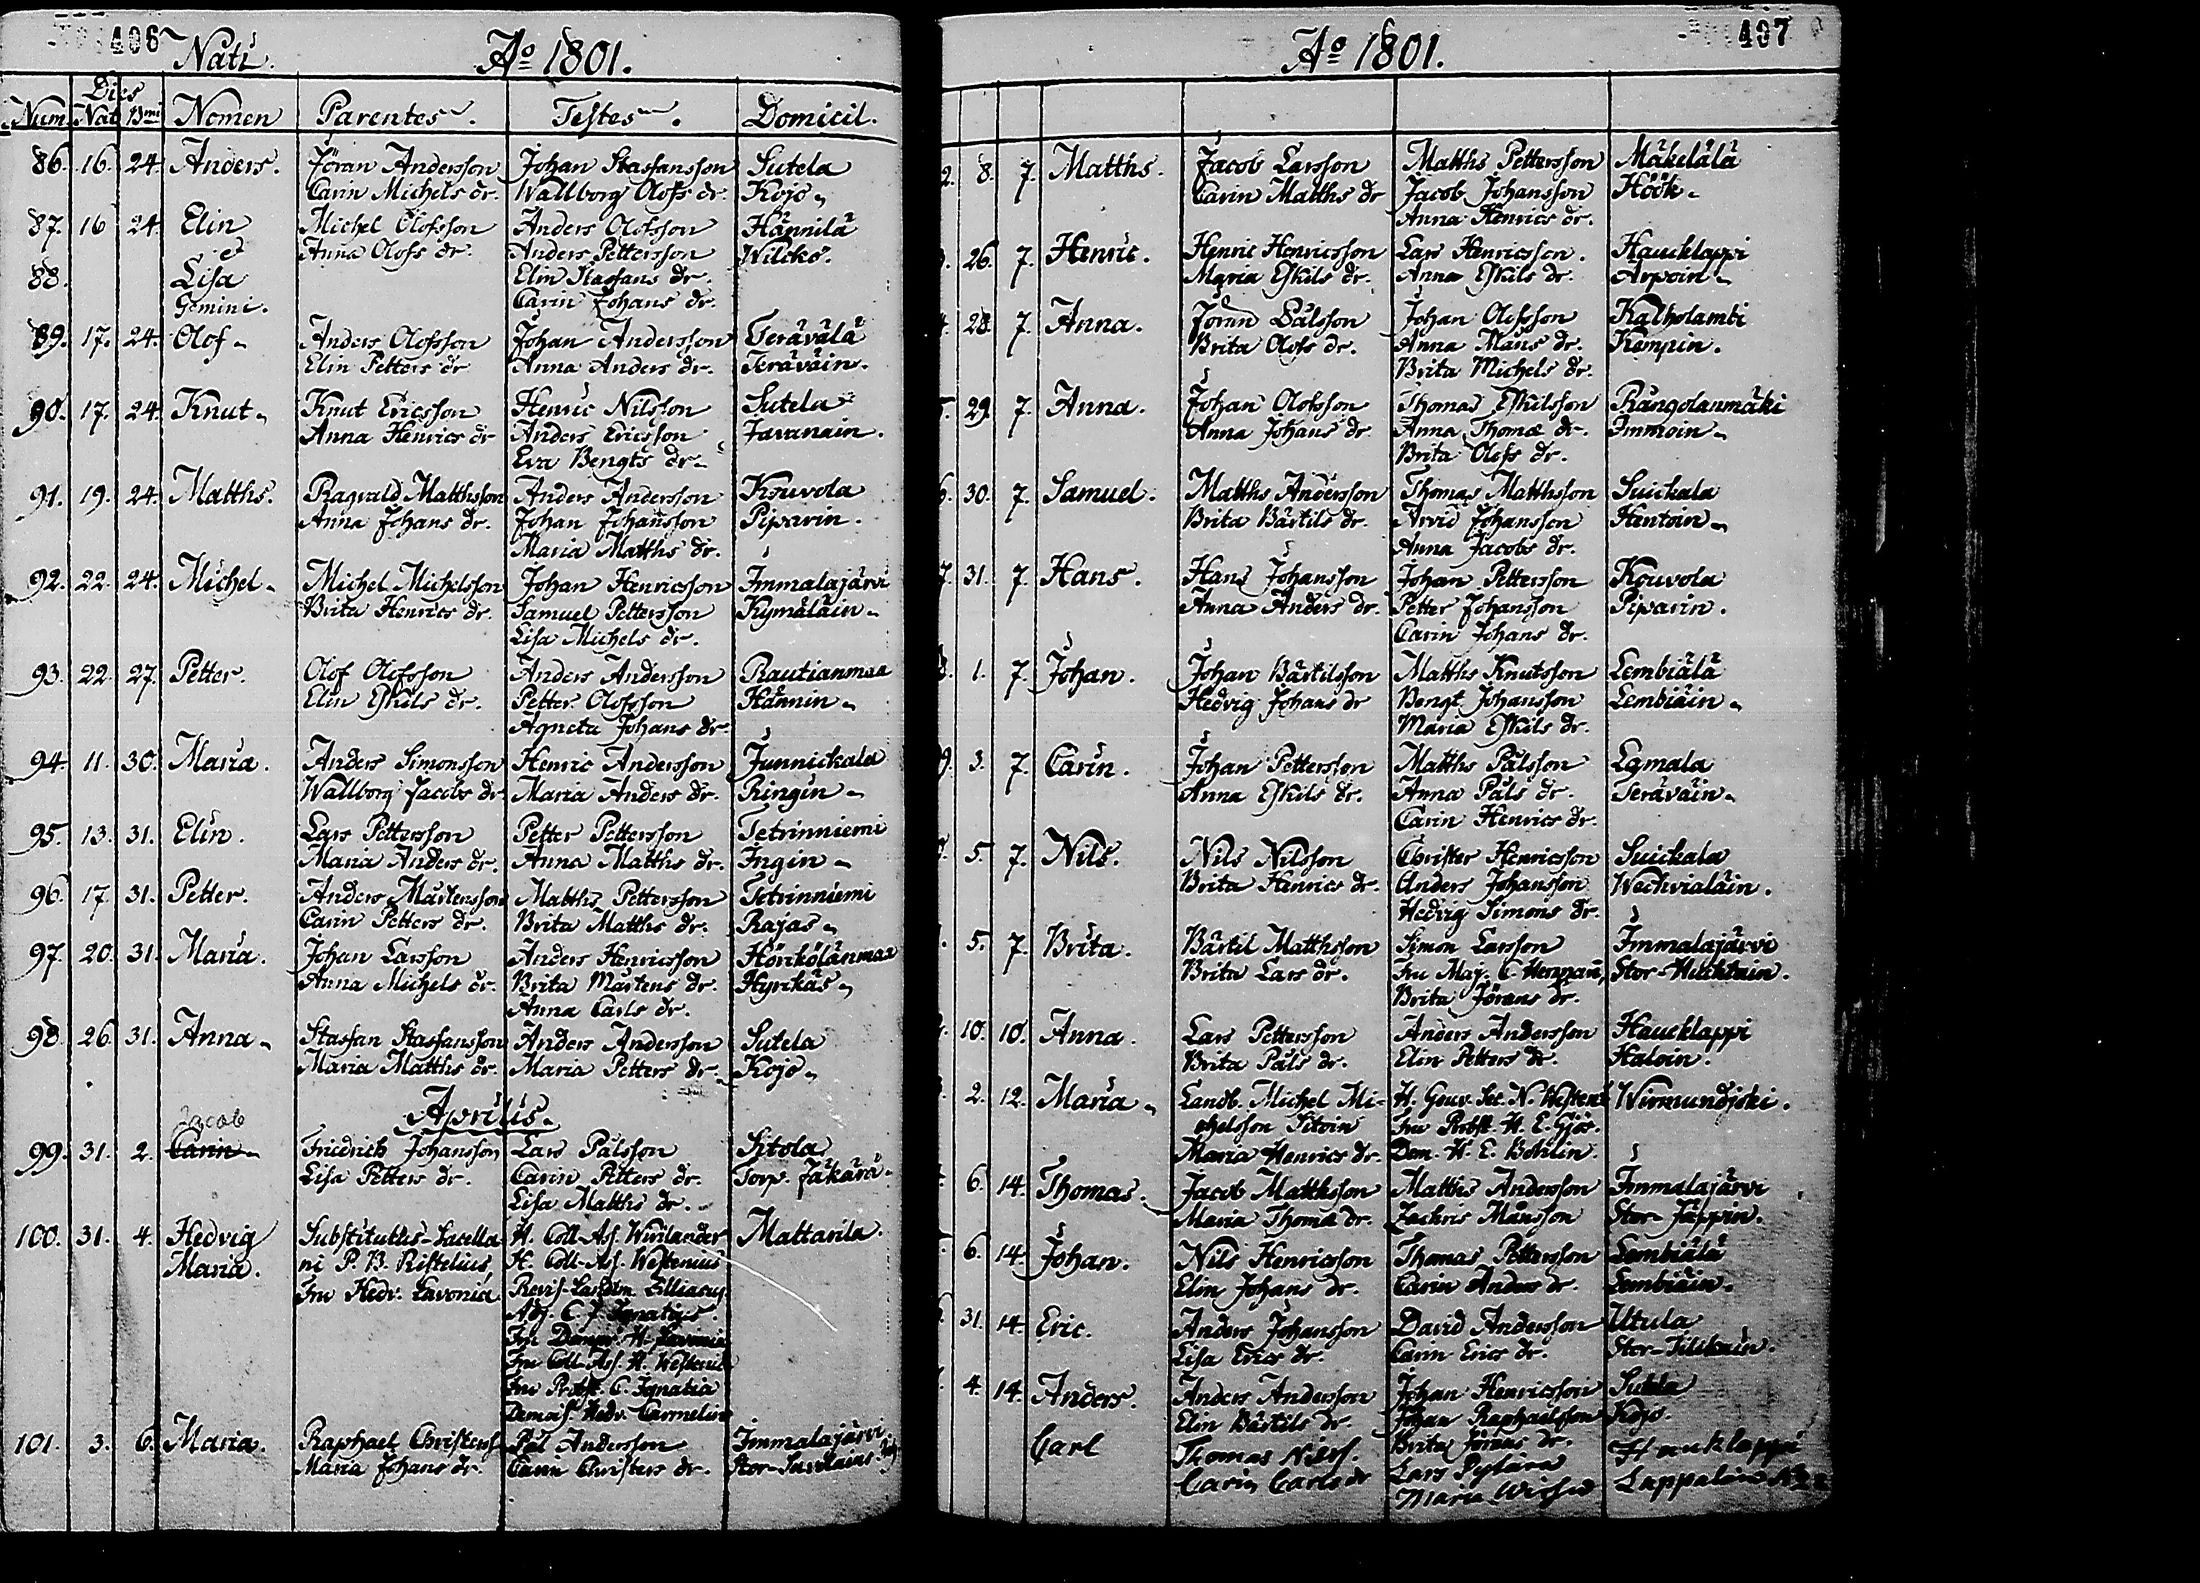 406
Nati. Aº 1801.
Dies
Num. Nat. Bmi Nomen Parentes. Testes. Domicil.
86. 16. 24. Anders. Jöran Andersson Johan Staffansson Sutela
Carin Michels dr. Wallborg Olofs dr. Kojo.
87. 16 24. Elin Michel Olofsson Anders Olofsson Hännilä
et Anna Olofs dr. Anders Pettersson Wilcko.
88. Lisa Elin Staffans dr.
Gemini. Carin Johans dr.
89. 17. 24. Olof Anders Olofsson Johan Andersson Terävälä
Elin Petters dr Anna Anders dr. Teräväin.
90. 17. 24. Knut Knut Ericsson Henric Nilsson Sutela
Anna Henrics dr Anders Ericsson Javanain.
Eva Bengts dr.
91. 19. 24. Matths. Ragvald Matthsson Anders Andersson Kouvola
Anna Johans dr. Johan Johansson Piparin.
Maria Matths dr.
92. 22. 24. Michel Michel Michelsson Johan Henricsson Immalajärvi
Brita Henrics dr. Samuel Pettersson Kymäläin
Lisa Michels dr.
93. 22. 27. Petter. Olof Olofsson Anders Andersson Rautianmaa
Elin Eskils dr. Petter Olofsson Hännin
Agneta Johans dr.
94. 11. 30. Maria. Anders Simonsson Henric Andersson Junnickala
Wallborg Jacobs dr. Maria Anders dr. Ringin
95. 13. 31. Elin. Lars Pettersson Petter Pettersson Tetrinniemi
Maria Anders dr. Anna Matths dr. Ingin
96. 17. 31. Petter. Anders Mårtensson Matths Pettersson Tetrinniemi
Carin Petters dr. Brita Matths dr. Rajas
97. 20. 31. Maria. Johan Larsson Anders Henricsson Hörikölänmaa
Anna Michels dr. Brita Mårtens dr. Hyrikäs
Anna Carls dr.
98. 26. 31. Anna Staffan Staffansson Anders Andersson Sutela
Maria Matths dr. Maria Petters dr. Kojo
Aprilis.
Jacob
99. 31. 2. Carin Friedrich Johansson Lars Pålsson Sitola
Lisa Petters dr. Carin Petters dr. Torp. Jäkärä
Lisa Matths dr.
100. 31. 4. Hedvig Substituths-Sacella H. Coll. Ass. Wirilander Mattarila.
Maria. ni P. B. Ristelius H. Coll. Ass. Westenius
Fru Hedv. Lavonia
Adj. C. J. Ignatius.
Fru H. Lavonia
Fru Coll. Ass. H. Westenius
Fru Probst. C. Ignatia
Demois. Hedv. Carmelin
101. 3. 6. Maria. Raphael Christerss. Pål Andersson Immalajärvi
Maria Johans dr. Carin Christers dr.
407
Aº 1801.
2. 8. 7. Matths. Jacob Larsson Matths Pettersson Mäkelälä
Carin Matths dr Jacob Johansson Höök
Anna Henrics dr.
26. 7. Henric. Henric Henricsson Lars Henricsson. Haucklappi
Maria Eskils dr. Anna Eskils dr. Arpoin
28. 7. Anna. Jöran Pålsson Johan Olofsson Kalholambi
Brita Olofs dr. Anna Måns dr. Kempin.
Brita Michels dr.
29. 7. Anna. Johan Olofsson Thomas Eskilsson Rångolanmäki
Anna Johans dr. Anna Thomæ dr. Immoin
Brita Olofs dr.
30. 7. Samuel. Matths Andersson Thomas Matthsson Suickala
Brita Bärtils dr. Arvid Johansson Hentoin
Anna Jacobs dr.
7. 31. 7. Hans. Hans Johansson Johan Pettersson Kouvola
Anna Anders dr. Petter Johansson Piparin.
Carin Johans dr.
1. 7. Johan. Johan Bärtilsson Matths Knutsson Lembiälä
Hedvig Johans dr Bengt Johansson Lembiäin
Maria Eskils dr.
9. 3. 7. Carin. Johan Pettersson Matths Pålsson Egmala
Anna Eskils dr. Anna Påls dr. Teräväin
Carin Henrics dr.
5. 7. Nils. Nils Nilsson Christer Henricsson Suickala
Brita Henrics dr. Anders Johansson Wechvialäin.
Hedvig Simons dr.
5. 7. Brita. Bärtil Matthsson Simon Larsson Immalajärvi
Brita Lars dr. Fru Maj. C. Hermann,
Brita Jörans dr.
10. 10. Anna. Lars Pettersson Anders Andersson Haucklappi
Brita Påls dr. Elin Petters dr. Haloin.
2. 12. Maria Landb. Michel Mi- H. Gouv. Sec. N. Wirmundjoki.
chelsson Sitoin Fru Probst. H. E.
Maria Henrics dr. Dem. H. E. Bohlin.
6. 14. Thomas. Jacob Matthsson Matths Andersson Immalajärvi
Maria Thomæ dr. Zachris Månsson Stor-Jäppin.
6. 14. Johan. Nils Henricsson Thomas Pettersson Lembiälä
Elin Johans dr. Carin Anders dr. Lembiäin.
31. 14. Eric. Anders Johansson David Andersson Utula
Lisa Erics dr. Carin Erics dr.
4. 14. Anders. Anders Andersson Johan Henricsson Sutela
Elin Bärtils dr Johan Raphaelsson Kojo.
Brita Jörans dr.
Carl Thomas Nilss. Lars Haucklappi
Carin Carls dr Maria